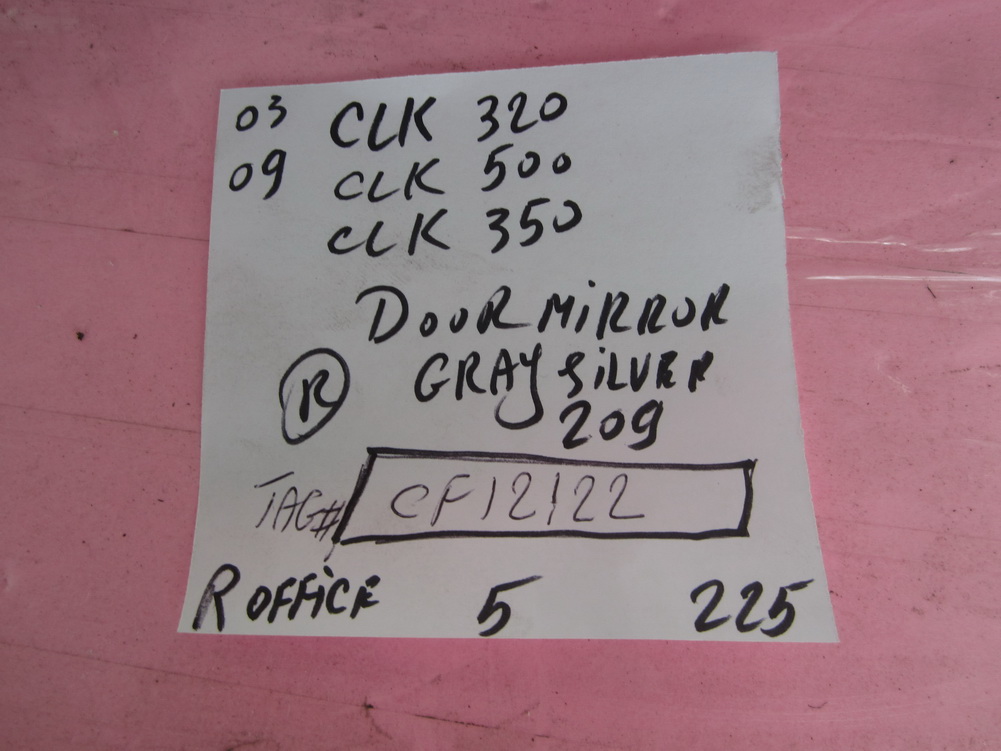 03 CLK 320
09 CLK 500
CLK 350
DOOR MiRROR
R GRAY SiLVER
209
TAG# CF12122
R OFFiCE 5 225